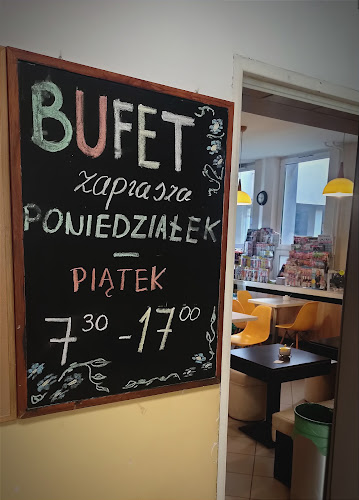 BUFET
zaprasza
PONIEDZIAŁEK
—
PIĄTEK
7³⁰ - 17⁰⁰